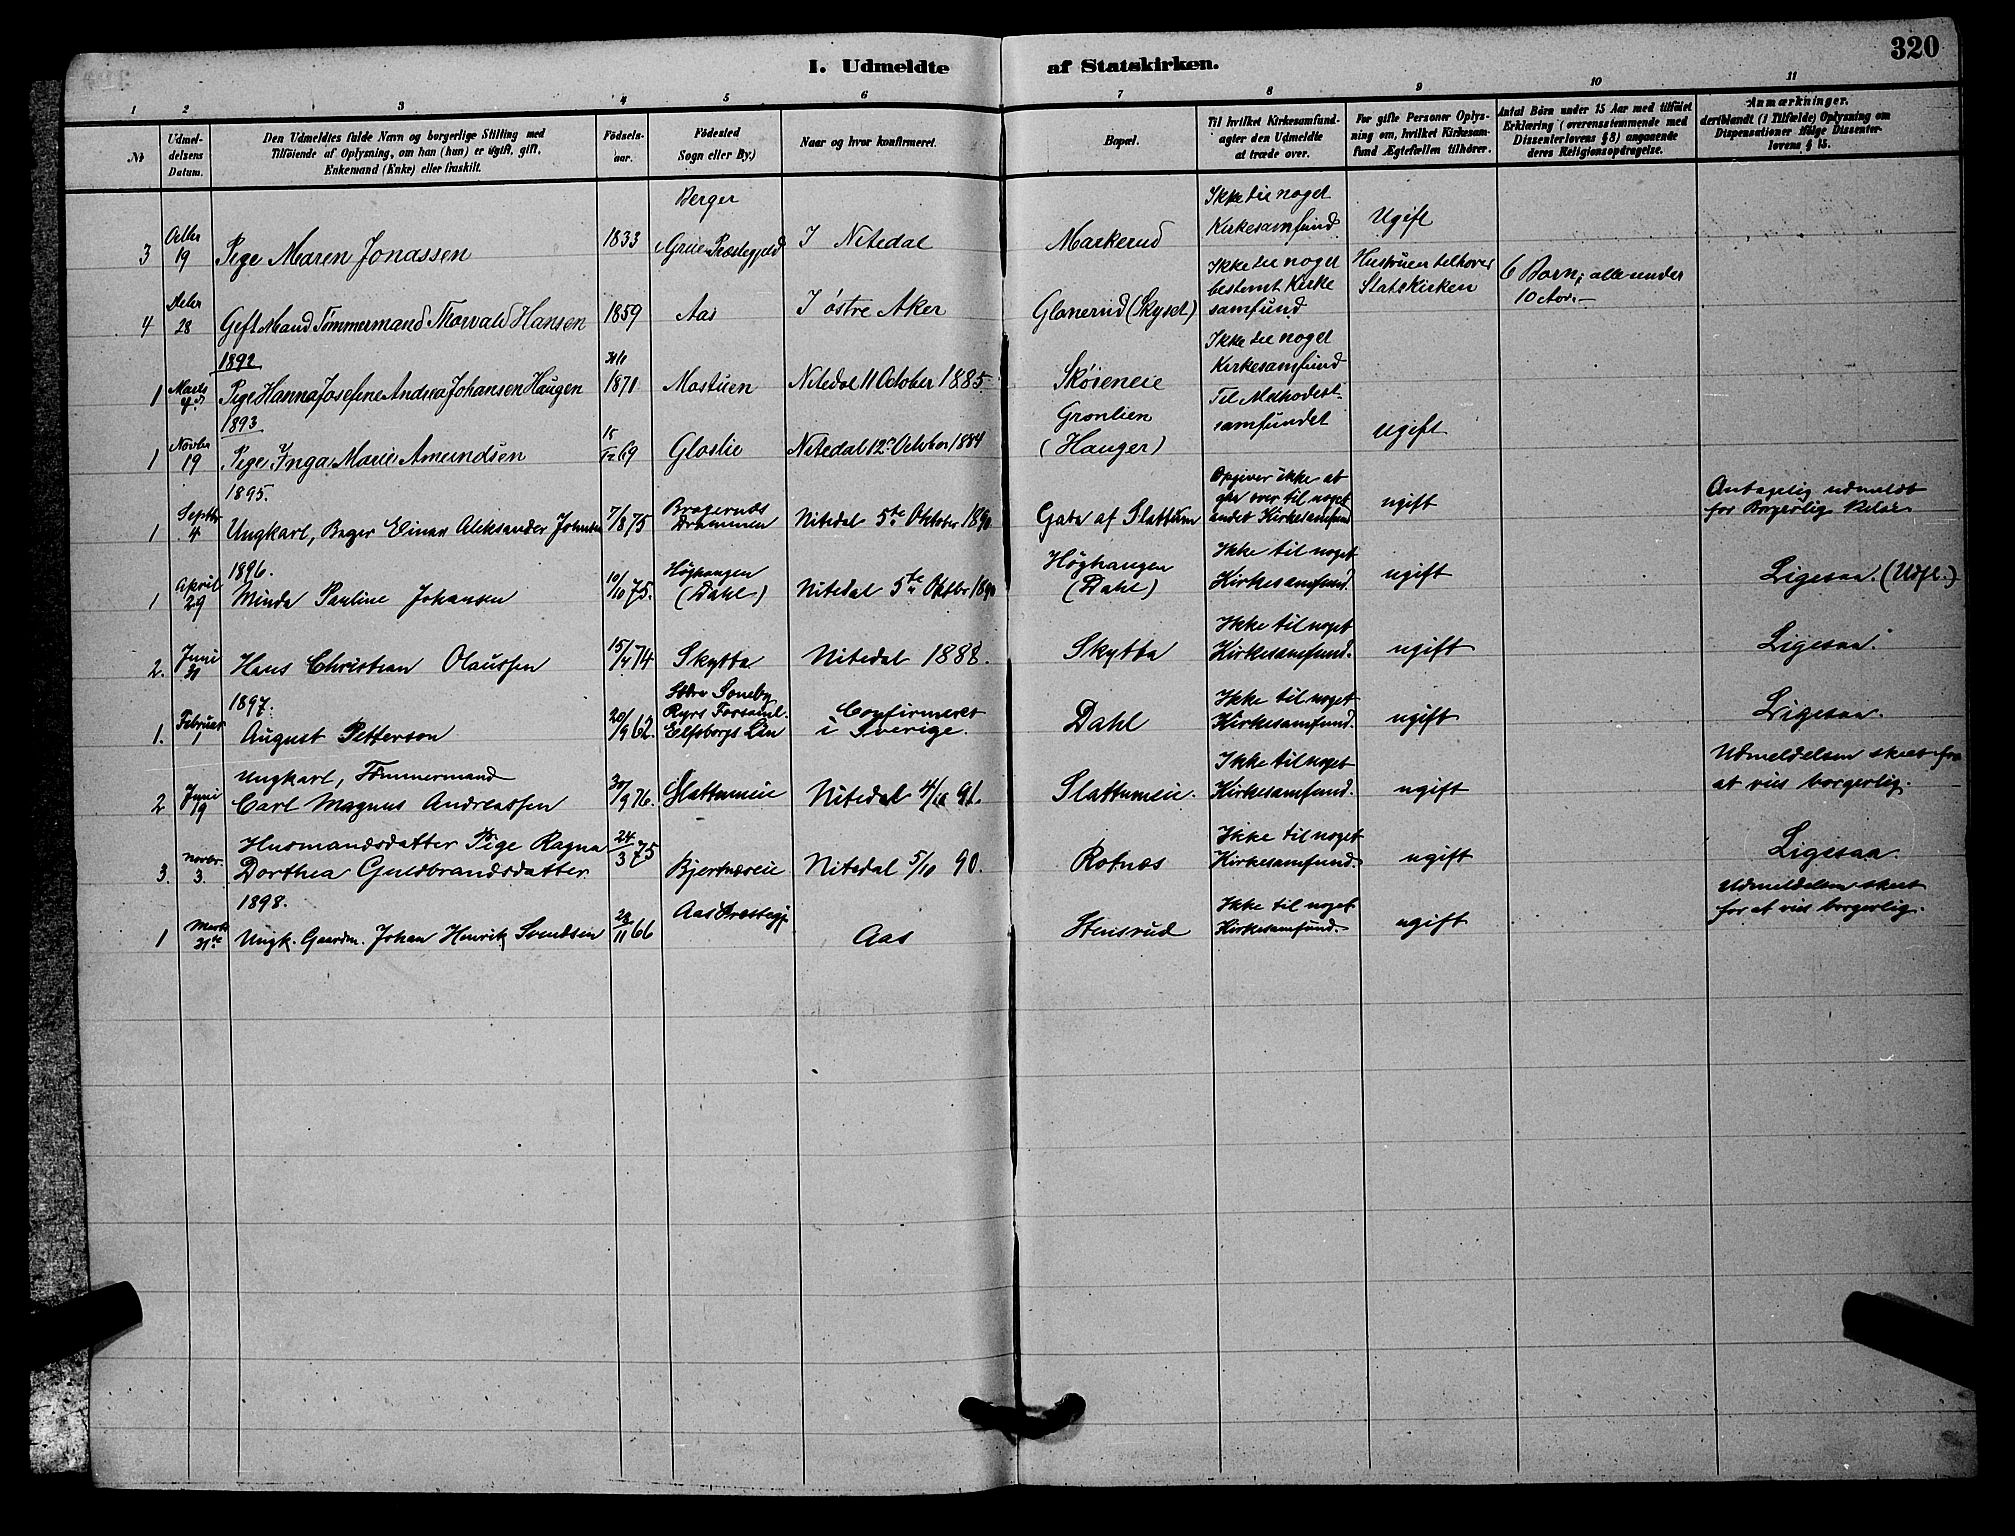 I. Udmeldte af Statskirken.
320
1 2 3 4 5 6 7 8 9 10 11
№
Udmeldelsens Datum.
Den Udmeldtes fulde Navn og borgerlige Stilling med
Tilföiende af Oplysning, om han (hun) er ugift, gift,
Enkemand (Enke) eller fraskilt.
Födsels-
aar.
Födested
Sogn eller By.)
Naar og hvor konfirmeret.
Bopæl.
Til hvilket Kirkesamfund-
agter den Udmeldte
at træde over.
For gifte Personer Oplys-
ning om, hvilket Kirkesam-
fund Ægtefællen tilhörer.
Antal Börn under 15 Aar med tilföiet
Erklæring (overensstemmende med
Dissenterlovens § 8) angaaende
deres Religionsopdragelse.
Anmærkninger.
deriblandt (i Tilfælde) Oplysning om
Dispensationer ifölge Dissenter-
lovens § 15.
3 19 Pige Maren Jonassen 1833 Berger Grue Præstegjeld I Nitedal Markerud Ikke til noget Kirkesamfund Ugift
4 28 Gift Mand Tømmermand Thorvald Hansen 1859 Aas I østre Aker Glanerud (Skyset) Ikke til noget bestemt Kirkesamfund Hustruen tilhører Statskirken 6 Børn, alle under 10 Aar.
1892
1 Marts Pige Hanna Josefine Andrea Johansen Haugen 1871 Mostuen Nitedal 11 October 1885. Skøieneie Ikke til noget Kirkesamfund
1893
1 Novbr 19 Pige Inga Marie Amundsen 69 Gloslie Nitedal 12 October 1884 Grønlien (Hauger) Til Methodist-samfundet ugift
1895.
1 Septbr 4 Ungkarl, Bager Einar Aleksander 7/8 75 Bragernæs Drammen Nitedal 5te Oktober 1890 Gata af Slattum Opgiver ikke at gaa over til noget andet Kirkesamfund ugift Antagelig udmeldt for Borgerlig
1896.
1 April 29 Minda Pauline Johansen 10/10 75. Höghaugen (Dahl) Nitedal 5te Oktbr 1890 Höghaugen (Dahl) Ikke til noget Kirkesamfund. ugift Ligesaa.
2. Juni Hans Christian Olaussen 15/4 74 Skytta Nitedal 1888. Skytta Ikke til noget Kirkesamfund. ugift Ligesaa.
1897.
1. Februar 1 August Petterson 20/9 62. Södra Ryrs Elfsborgs Län Confirmeret i Sverige. Dahl Ikke til noget Kirkesamfund. ugift Ligesaa.
2 Juni 19 Ungkarl, Tömmermand Carl Magnus Andreassen 30/9 76. Slattumeie Nitedal 4/10 91. Slattumeie. Ikke til noget Kirkesamfund. ugift Udmeldelsen skeet for at vies borgerlig.
3. novbr. 3. Husmandsdatter Pige Ragna Dorthea Guldbrandsdatter 24/3 75 Bjertnæseie Nitedal 5/10 90. Rotnæs Ikke til noget Kirkesamfund. ugift Ligesaa.
1898.
1 Marts 31te Ungk. Gaardm. Johan Henrik Svendsen 28/11 66 Aas Præstegj. Aas Stensrud Ikke til noget Kirkesamfund. ugift Udmeldelsen skeet for at vies borgerlig.